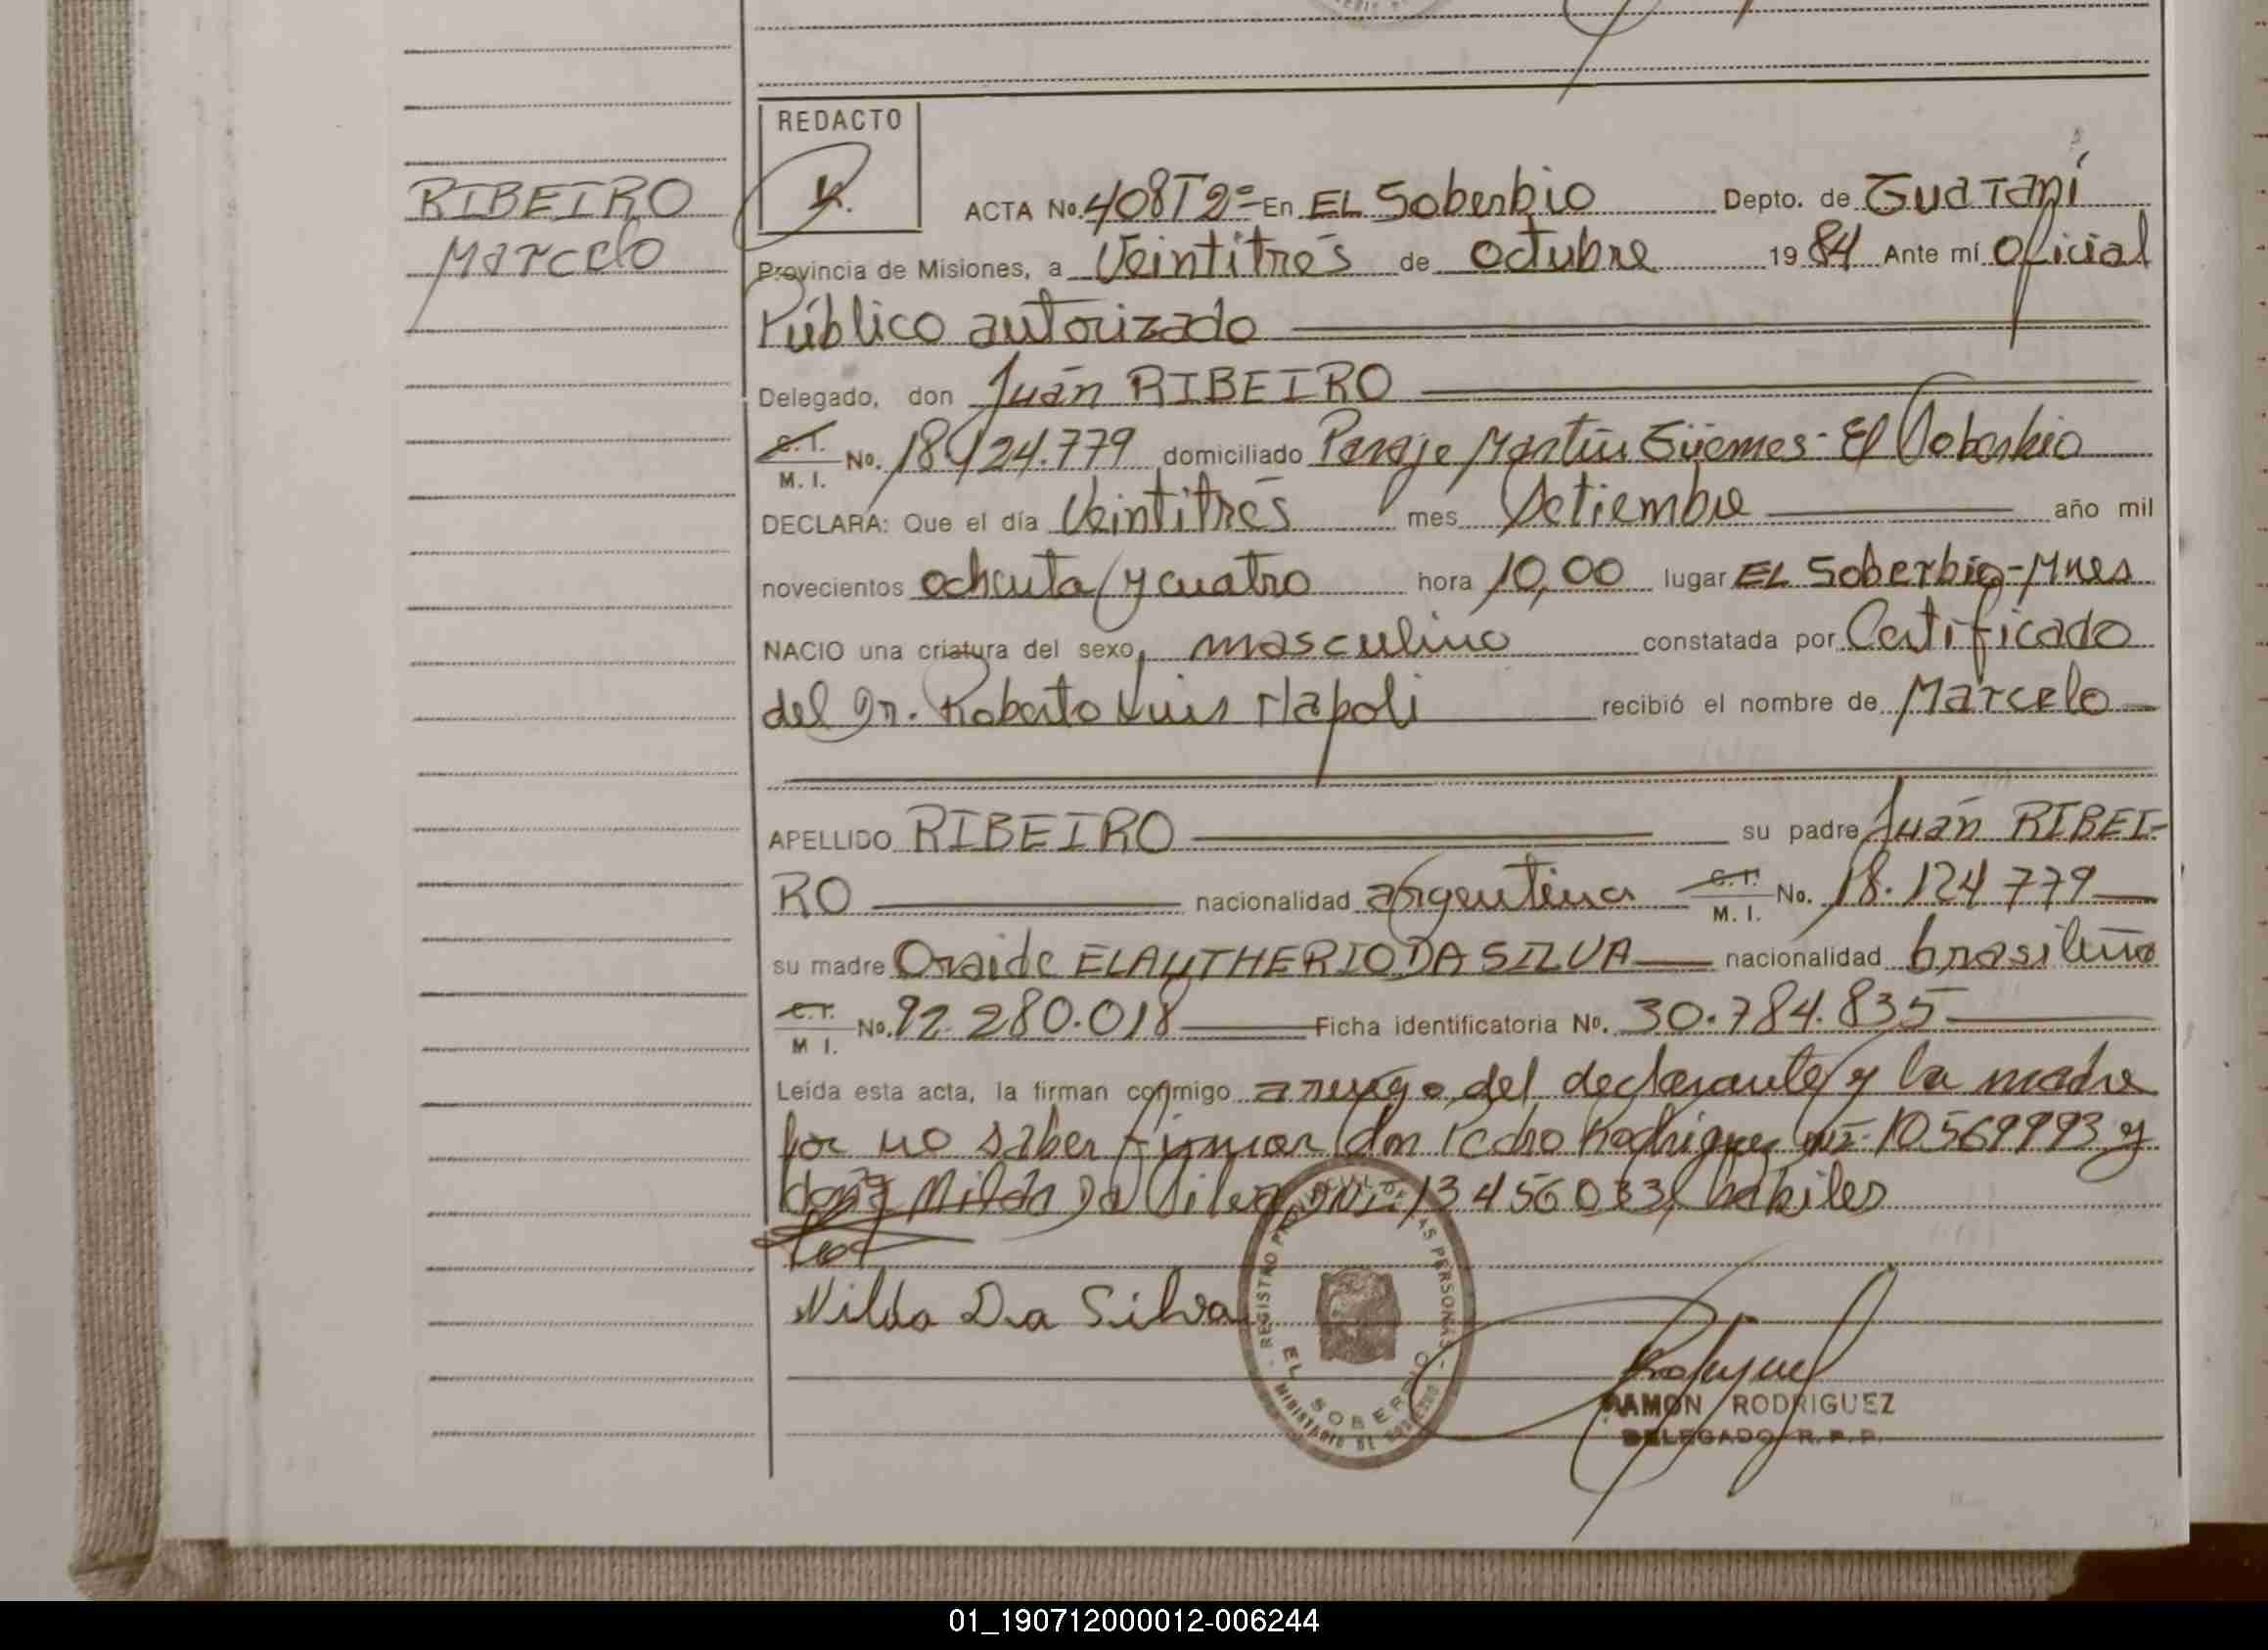 RIBEIRO
Marcelo
REDACTO
ACTA No. 408T2º En EL Soberbio Depto. de Guaraní
Provincia de Misiones, a Veintitrés de octubre 1984 Ante mí Oficial
Público autorizado
Delegado, don Juán RIBEIRO
C.I. M. I. No. 18.124.779 domiciliado Paraje Martín Güemes - El Soberbio
DECLARA: Que el día Veintitrés mes Setiembre año mil
novecientos ochenta y cuatro hora 10,00 lugar EL Soberbio-Mnes
NACIO una criatura del sexo masculino constatada por Certificado
del Dr. Roberto Luis Napoli recibió el nombre de Marcelo
APELLIDO RIBEIRO su padre Juán RIBEI-
RO nacionalidad argentina C.I. M. I. No. 18.124 779
su madre Oraide ELAUTHERIO DA SILVA nacionalidad brasileña
C.I. M I. No. 92.280.018 Ficha identificatoria No. 30.784.835
Leída esta acta, la firman conmigo a ruego del declarante y la madre
por no saber firmar don Pedro Rodriguez 10.569993 y
doña Nilda Da Silva DNI. 13456033, hábiles
Nilda Da Silva
REGISTRO PROVINCIAL DE LAS PERSONAS
EL SOBERBIO
MINISTERIO DE GOBIERNO
RAMON RODRIGUEZ
DELEGADO R. P. P.
01_190712000012-006244